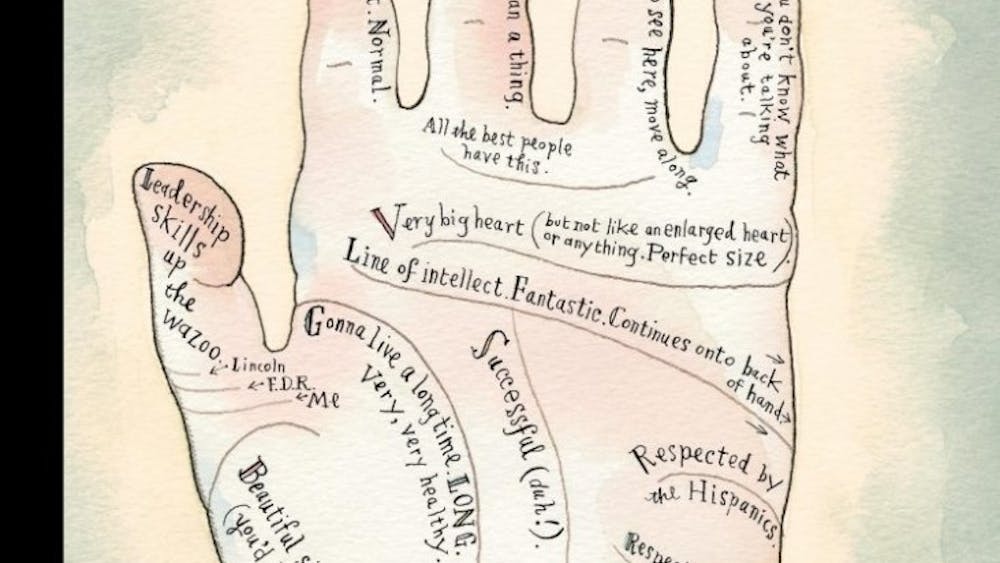 Normal.
an a thing.
see here, move along.
don't know what
you're talking
about.
All the best people
have this.
Very big heart (but not like an enlarged heart
or anything. Perfect size).
Line of intellect. Fantastic. Continues onto back
of hand
Leadership
skills
up
the
wazoo.
Lincoln
F.D.R.
Me
Gonna live a long time. LONG.
Very, very healthy.
Successful (duh!).
Respected by
the Hispanics.
Beautiful
(you'd